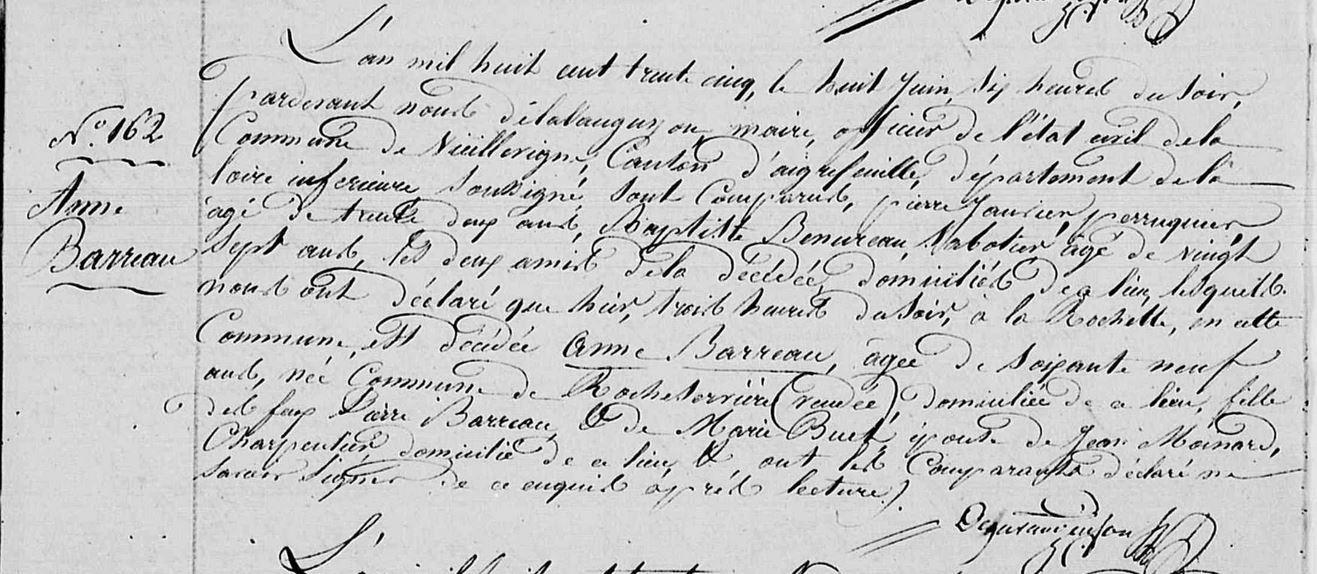 L'an mil huit cent trente cinq, le huit Juin, six heures du soir,
N.o 162
pardevant nous maire, officier de l'état civil de la
Commune de Vieillevigne, Canton d'aigrefeuille, département de la
Anne
loire inferieure soussigné, sont Comparus, pierre Janvier, perruquier,
âgé de trente deux ans, Baptiste Benureau, sabotier, âgé de vingt
Barreau
sept ans, les deux amis de la décédée, domiciliés de ce lieu, lesquels
nous ont déclaré que hier, trois heures du soir, à la Rochelle, en cette
Commune, est décédée Anne Barreau, âgée de soixante neuf
ans, née Commune de Rocheservière (vendée), domiciliée de ce lieu, fille
des feux Pierre Barreau, & de Marie épouse de Jean Moinard,
Charpentier, domicilié de ce lieu, & ont les Comparants déclaré ne
savoir signer de ce enquis après lecture.